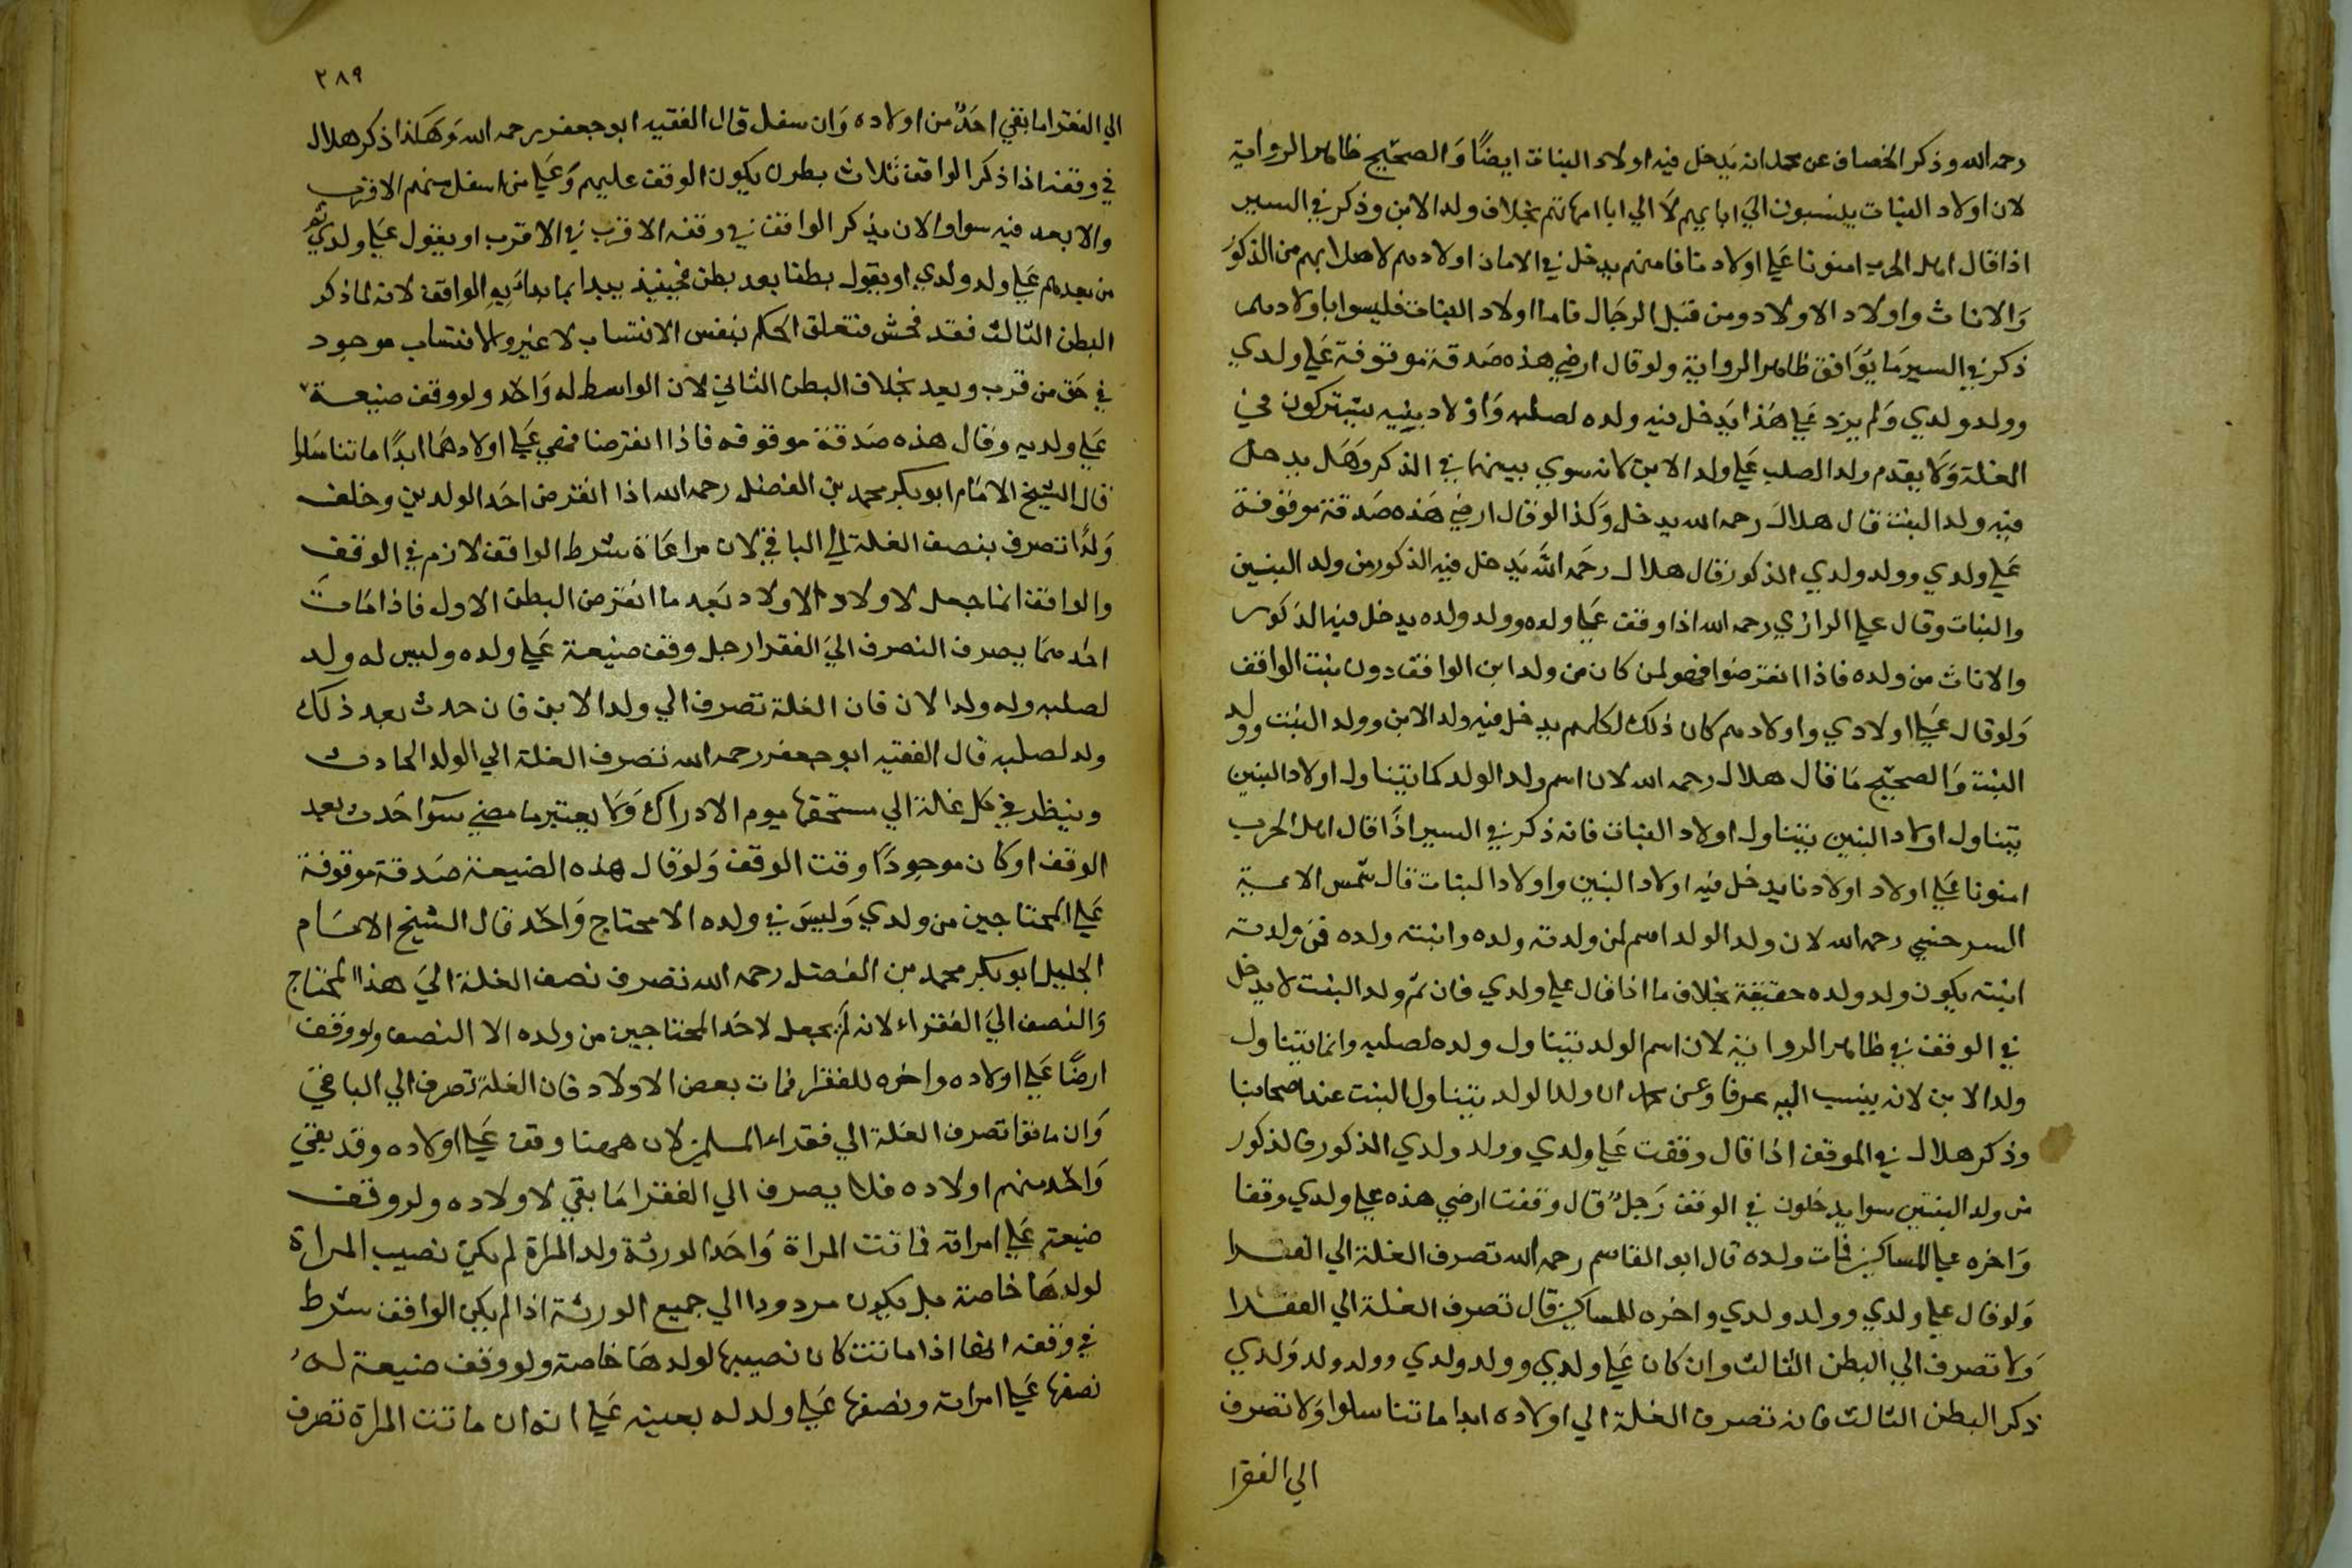 رحمه الله وذكر الخصاف عن محمد انه يدخل فيه اولاد البنات ايضًا والصحيح ظاهر الرواية
لان اولاد البنات ينسبون الي ابايهم لا الي ابا امهاتهم بخلاف ولد الابن وذكر في السير
اذا قال اهل الحرب امنونا علي اولادنا فامنهم يدخل في الامان اولادهم لاصلابهم من الذكور
والاناث واولاد الاولاد ومن قبل الرجال فاما اولاد البنات فليسوا باولادهم
ذكر في السير ما يوافق ظاهر الرواية ولو قال ارضي هذه صدقة موقوفة علي ولدي
وولد ولدي ولم يزد علي هذا يدخل فيه ولده لصلبه واولاد بنيه يشتركون في
الغلة ولا يقدم ولد الصلب علي ولد الابن لانه سوي بينهما في الذكر وهل يدخل
فيه ولد البنت قال هلال رحمه الله يدخل وكذا لو قال ارضي هذه صدقة موقوفة
علي ولدي وولد ولدي الذكور قال هلال رحمه الله يدخل فيه الذكور من ولد البنين
والبنات وقال علي الرازي رحمه الله اذا وقف علي ولده وولد ولده يدخل فيه الذكور
والاناث من ولده فاذا انقرضوا فهو لمن كان من ولد ابن الواقف دون بنت الواقف
ولو قال علي اولادي واولادهم كان ذلك لكلهم يدخل فيه ولد الابن وولد البنت وولد
البنت والصحيح ما قال هلال رحمه الله لان اسم ولد الولد كما يتناول اولاد البنين
يتناول اولاد البنين يتناول اولاد البنات فانه ذكر في السير اذا قال اهل الحرب
امنونا علي اولاد اولادنا يدخل فيه اولاد البنين واولاد البنات قال شمس الايمة
السرخسي رحمه الله لان ولد الولد اسم لمن ولدته ولده وابنته ولده فمن ولدته
ابنته يكون ولد ولده حقيقة بخلاف ما اذا قال علي ولدي فان ثم ولد البنت لا يدخل
في الوقف في ظاهر الرواية لان اسم الولد يتناول ولده لصلبه وانما يتناول
ولد الابن لانه ينسب اليه عرفا وعن محمد ان ولد الولد يتناول البنت عند اصحابنا
وذكر هلال في الموقف اذا قال وقفت علي ولدي وولد ولدي الذكور فالذكور
من ولد البنين سوا يدخلون في الوقف رجلٌ قال وقفت ارضي هذه علي ولدي وقفا
واخره علي المساكين فمات ولده قال ابو القاسم رحمه الله تصرف الغلة الي الفقرا
ولو قال علي ولدي وولد ولدي واخره للمساكين قال تصرف الغلة الي الفقرا
ولا تصرف الي البطن الثالث وان كان علي ولدي وولد ولدي وولد ولد ولدي
ذكر البطن الثالث فانه تصرف الغلة الي اولاده ابدا ما تناسلوا ولا تصرف
الي الفقرا
٢٨٩
الي الفقرا ما بقي احدٌ من اولاده وان سفل قال الفقيه ابو جعفر رحمه الله وهكذا ذكر هلال
في وقفه اذا ذكر الواقف ثلاث بطون يكون الوقف عليهم وعلي من اسفل منهم الاقرب
والابعد فيه سوا الا ان يذكر الواقف في وقفه الاقرب في الاقرب او يقول علي ولدي ثم
من بعدهم علي ولد ولدي او يقول بطنا بعد بطن فحينيذ يبدا بما بدا به الواقف لانه لما ذكر
البطن الثالث فقد فحش فتعلق الحكم بنفس الانتساب لا غير والانتساب موجود
في حق من قرب وبعد بخلاف البطن الثاني لان الواسط له واحد ولو وقف ضيعة
علي ولديه وقال هذه صدقة موقوفه فاذا انقرضا فهي علي اولادهما ابدًا ما تناسلوا
قال الشيخ الامام ابو بكر محمد بن الفضل رحمه الله اذا انقرض احد الولدين وخلف
ولدًا تصرف بنصف الغلة الي الباقي لان مراعاة شرط الواقف لازم في الوقف
والواقف انما جعل لاولاد الاولاد بعد ما انقرض البطن الاول فاذا مات
احدهما يصرف النصرف الي الفقرا رجل وقف ضيعة علي ولده وليس له ولد
لصلبه وله ولد الان فان الغلة تصرف الي ولد الابن فان حدث بعد ذلك
ولد لصلبه قال الفقيه ابو جعفر رحمه الله تصرف الغلة الي الولد الحادث
وينظر في كل غلة الي مستحقها يوم الادراك ولا يعتبر ما مضي سوا حدث بعد
الوقف او كان موجودًا وقت الوقف ولو قال هذه الضيعة صدقة موقوفة
علي المحتاجين من ولدي وليس في ولده الا محتاج واحد قال الشيخ الامام
الجليل ابو بكر محمد بن الفضل رحمه الله تصرف نصف الغلة الي هذا المحتاج
والنصف الي الفقراء لانه لم يجعل لاحد المحتاجين من ولده الا النصف ولو وقف
ارضًا علي اولاده واخره للفقرا فمات بعض الاولاد فان الغلة تصرف الي الباقي
وان ماتوا تصرف الغلة الي فقراء المسلمين لان ههنا وقف علي اولاده وقد بقي
واحد منهم اولاده فلا يصرف الي الفقرا ما بقي لاولاده ولو وقف
ضيعة علي امراته فماتت المراة واحد الورثة ولد المراة لم يكن نصيب المراة
لولدها خاصة بل يكون مردودا الي جميع الورثة اذا لم يكن الواقف شرط
في وقفه انها اذا ماتت كان نصيبها لولدها خاصة ولو وقف ضيعة له
نصفها علي امراته ونصفها علي ولد له بعينه علي انه ان ماتت المراة تصرف